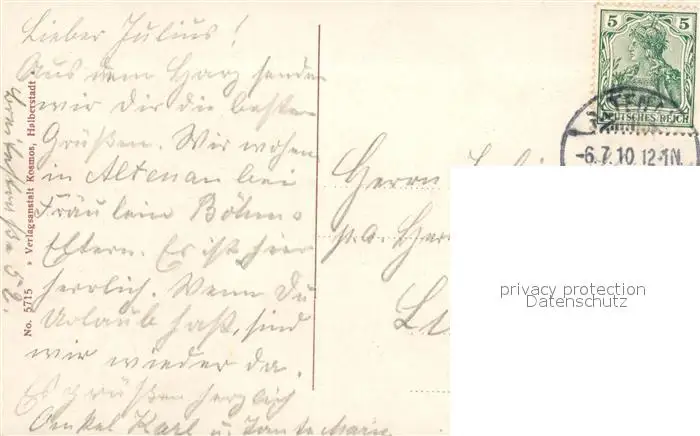 Lieber Julius!
Aus dem Harz senden
wir dir die besten
Grüßen. Wir wohnen
in Altenau bei
Fräulein Böhms
Eltern. Es ist hier
herrlich. Wenn Du
Urlaub hast, sind
wir wieder da.
Es grüßen herzlich
Onkel Karl u. Tante Marie
No. 5715 Verlagsanstalt Kosmos, Halberstadt
5 5
DEUTSCHES REICH
-6.7.10.12-1N.
Herrn
p.a. Her
privacy protection
Datenschutz